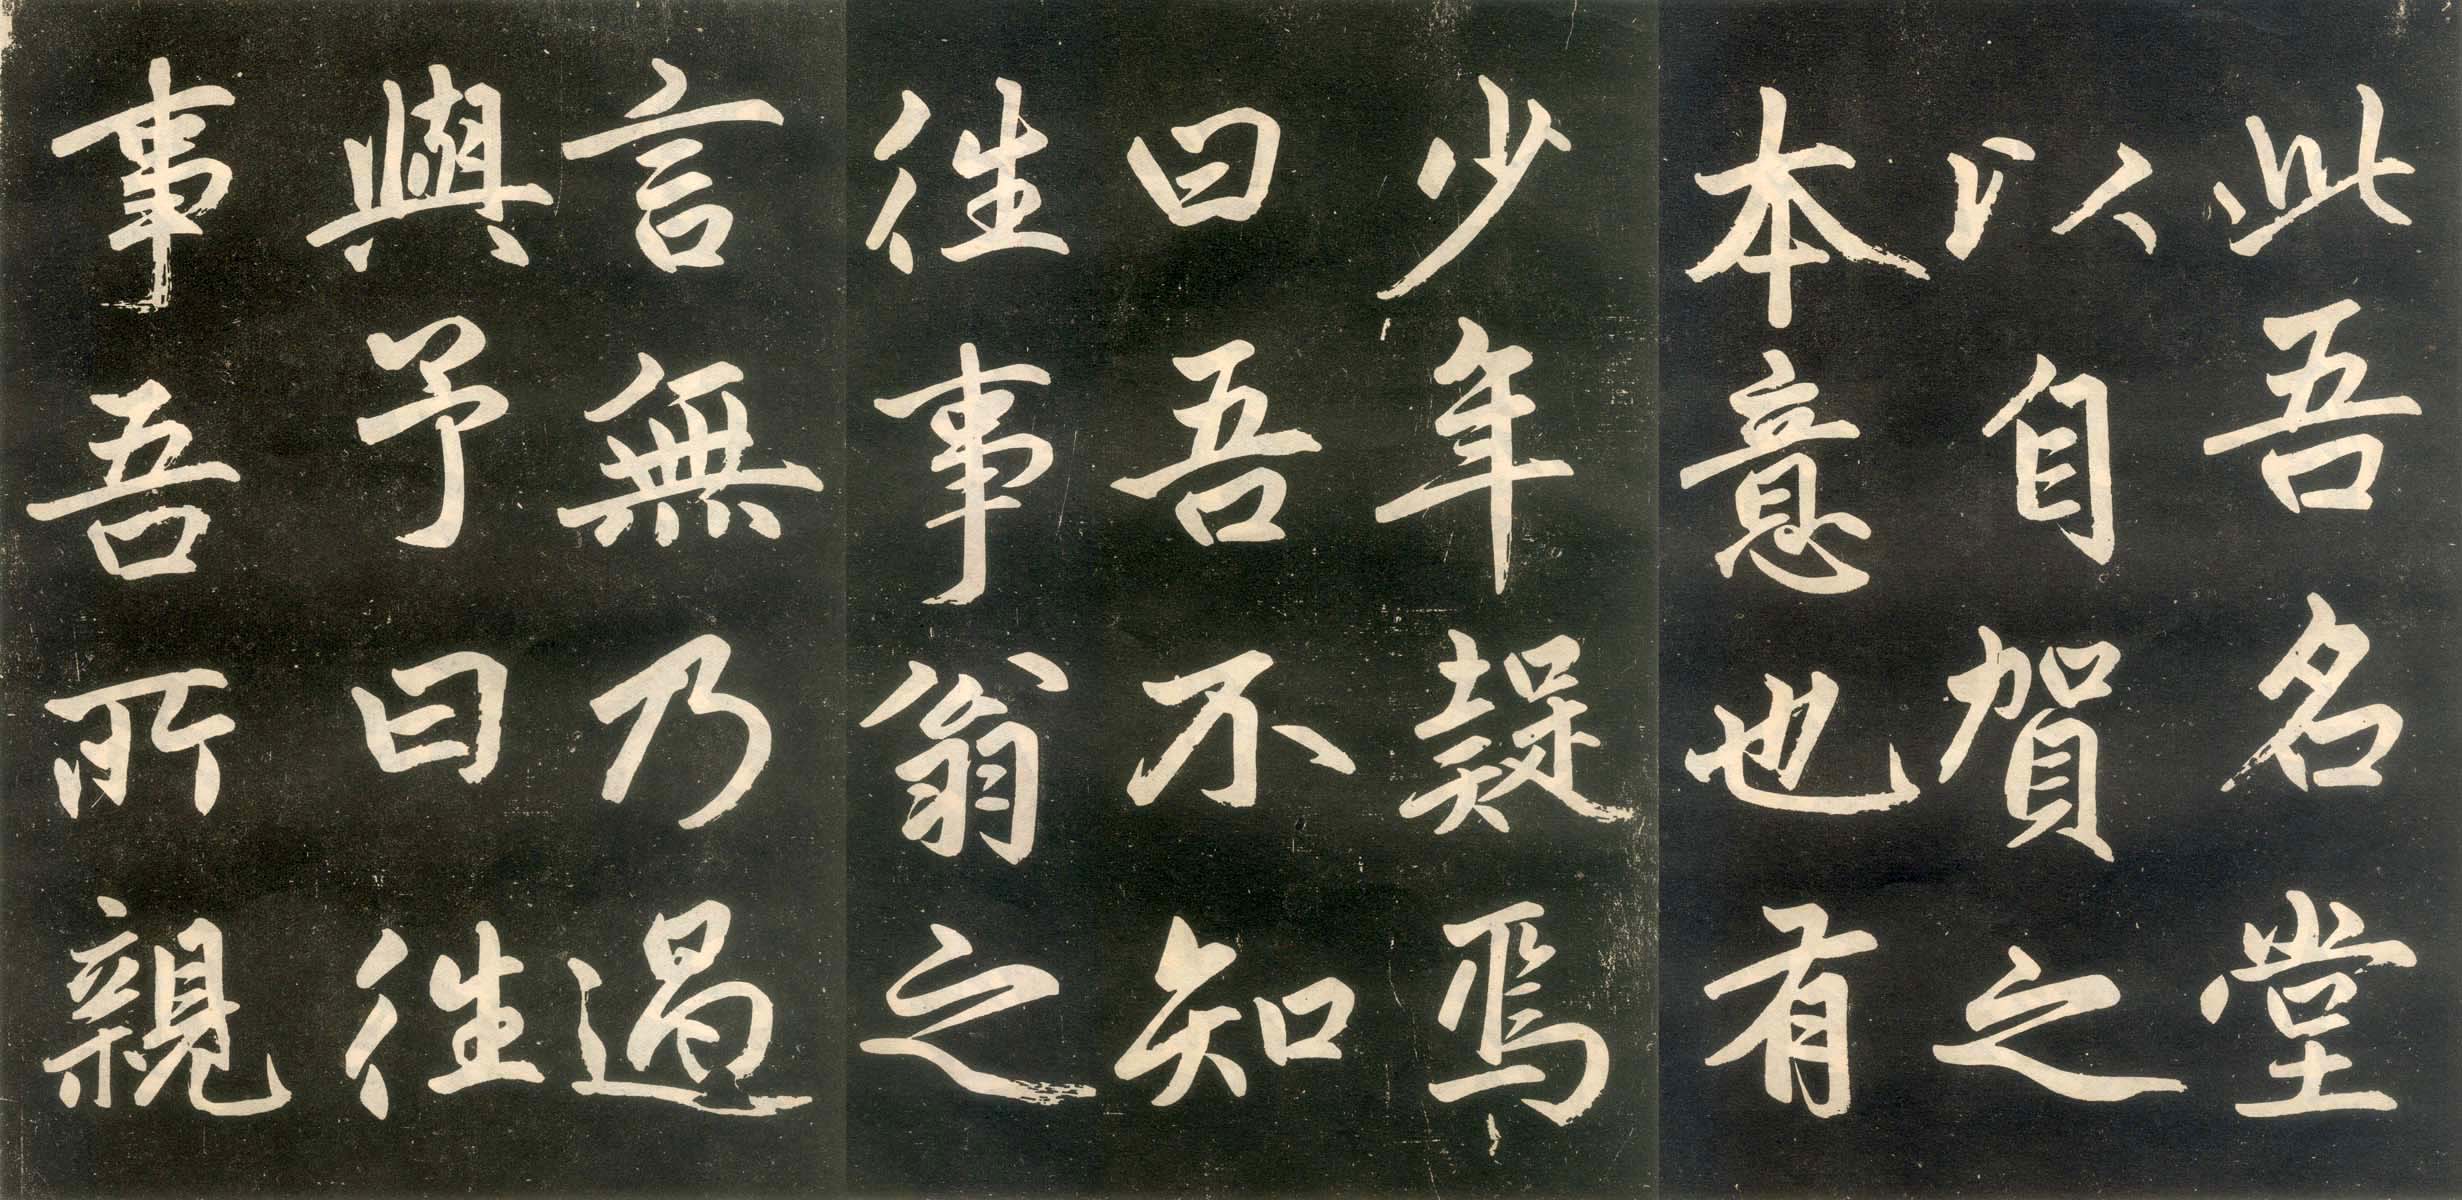 此吾名堂
以自賀之
本意也有
少年疑焉
曰吾不知
往事翁之
言無乃過
與予曰往
事吾所親